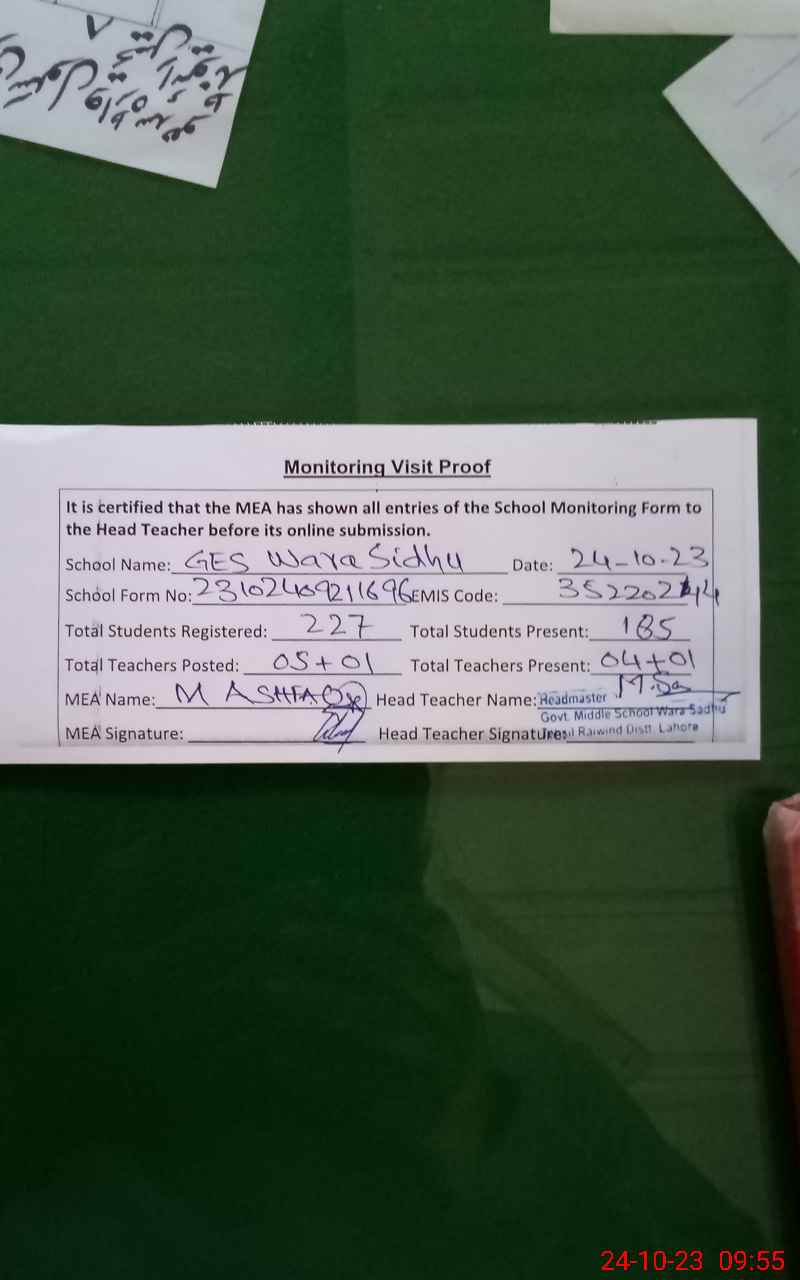 Monitoring Visit Proof
It is certified that the MEA has shown all entries of the School Monitoring Form to
the Head Teacher before its online submission.
School Name: GES Wara Sidhu Date: 24-10-23
School Form No: 23102409211696 EMIS Code:
Total Students Registered: 227 Total Students Present: 185
Total Teachers Posted: 05+01 Total Teachers Present: 04+01
MEA Name: M ASHFAQ Head Teacher Name: Headmaster
Govt. Middle School Wara Sadhu
MEA Signature: Head Teacher Signature: Raiwind Distt. Lahore
24-10-23 09:55